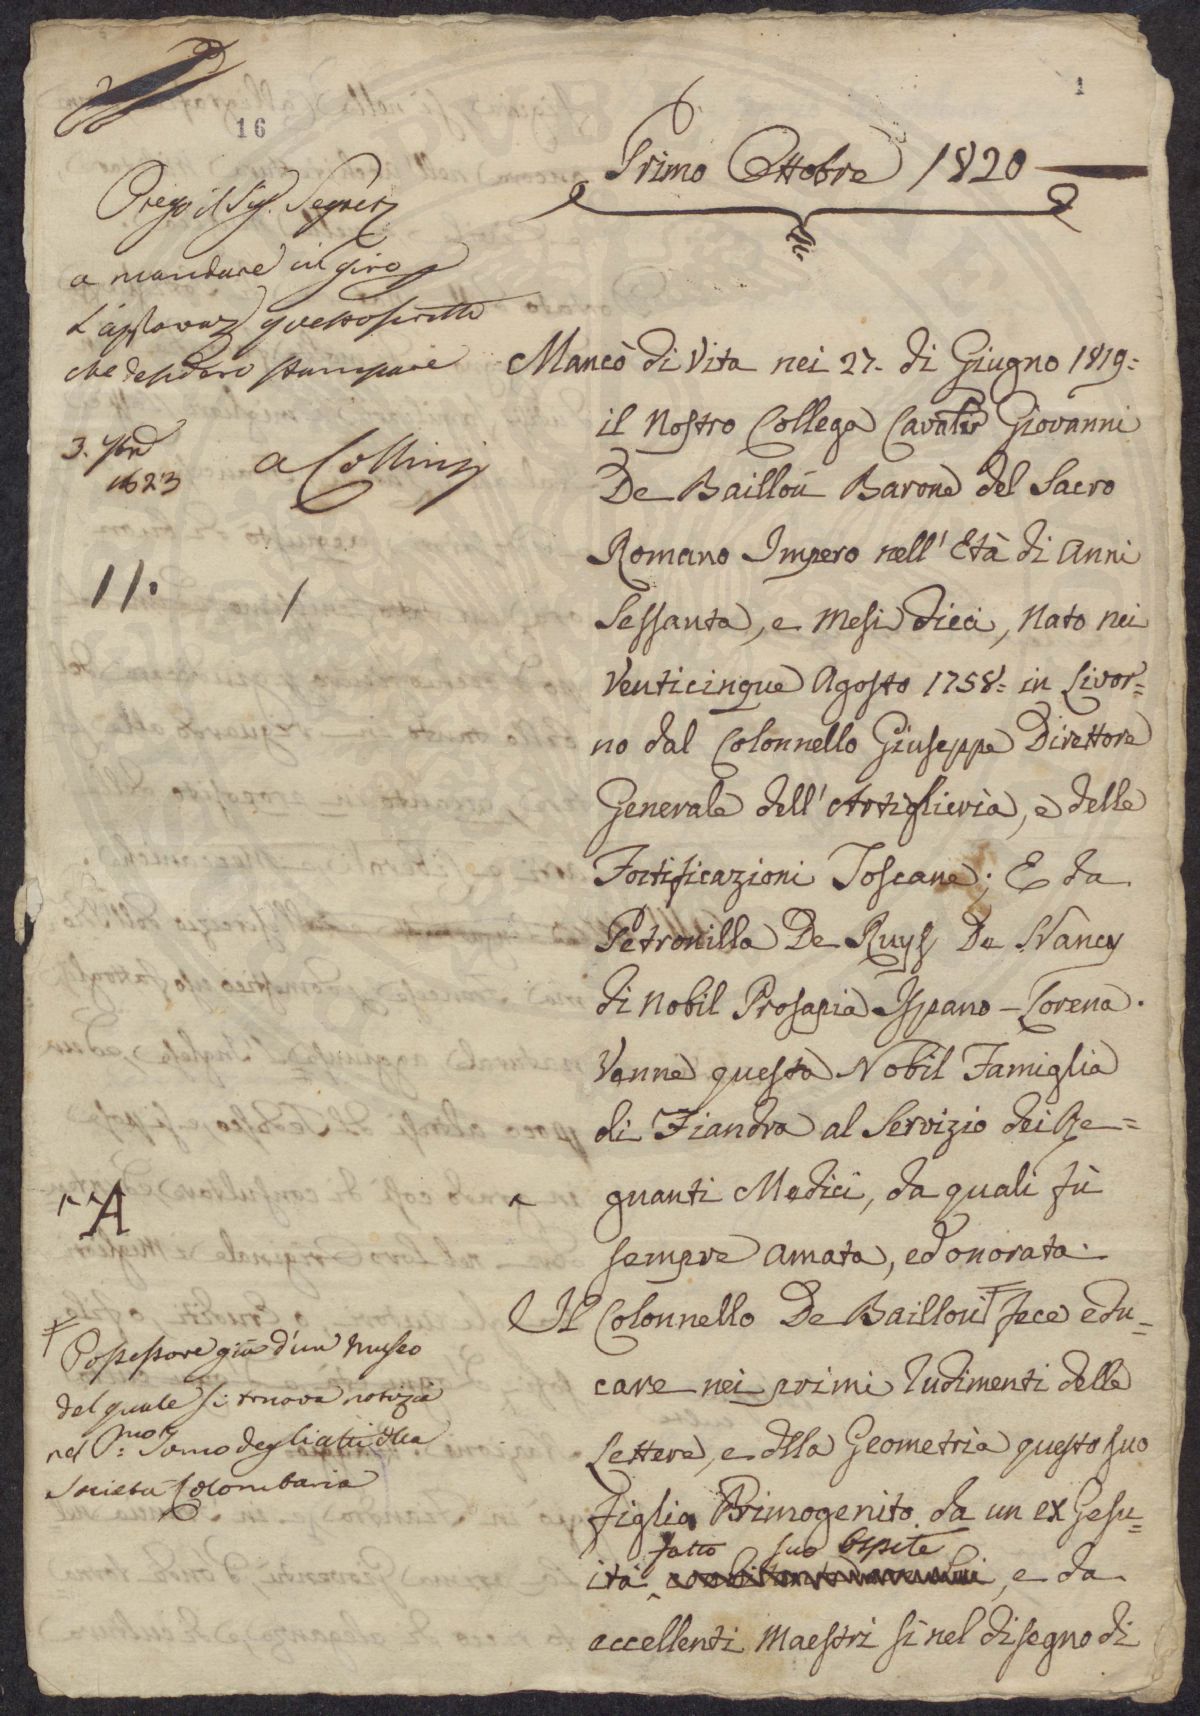 1
16
Primo Ottobre 1820
Prego il Sig. Segret.
a mandare in giro
l'approvaz questo scritto
che desidero stampare
3. 9bre
1823
a Collini
11.
1
Mancò di Vita nei 27. di Giugno 1819:
il Nostro Collega Cavalir Giovanni
De Baillou Barone del Sacro
Romano Impero nell' Età di Anni
Sessanta, e Mesi dieci, Nato nei
Venticinque Agosto 1758: in Livor=
no dal Colonnello Giuseppe Direttore
Generale dell' Artiglieria, e delle
Fortificazioni Toscane; E da
Petronilla De Ruys De Nancy
di Nobil Prosapia Ispano-Lorena.
Venne questa Nobil Famiglia
di Fiandra al Servizio dei Re=
gnanti Medici, da quali fù
sempre amata, ed onorata.
A
Il Colonnello De Baillou fece edu=
care nei primi Rudimenti delle
Lettere, e della Geometria questo suo
Figlio Primogenito da un ex Gesu=
fatto suo Ospite
ita, e da
eccellenti Maestri sì nel disegno di
Possessore già d'un Museo
del quale si truova notizia
nel P.mo Tomo degli atti della
Società Colombaria